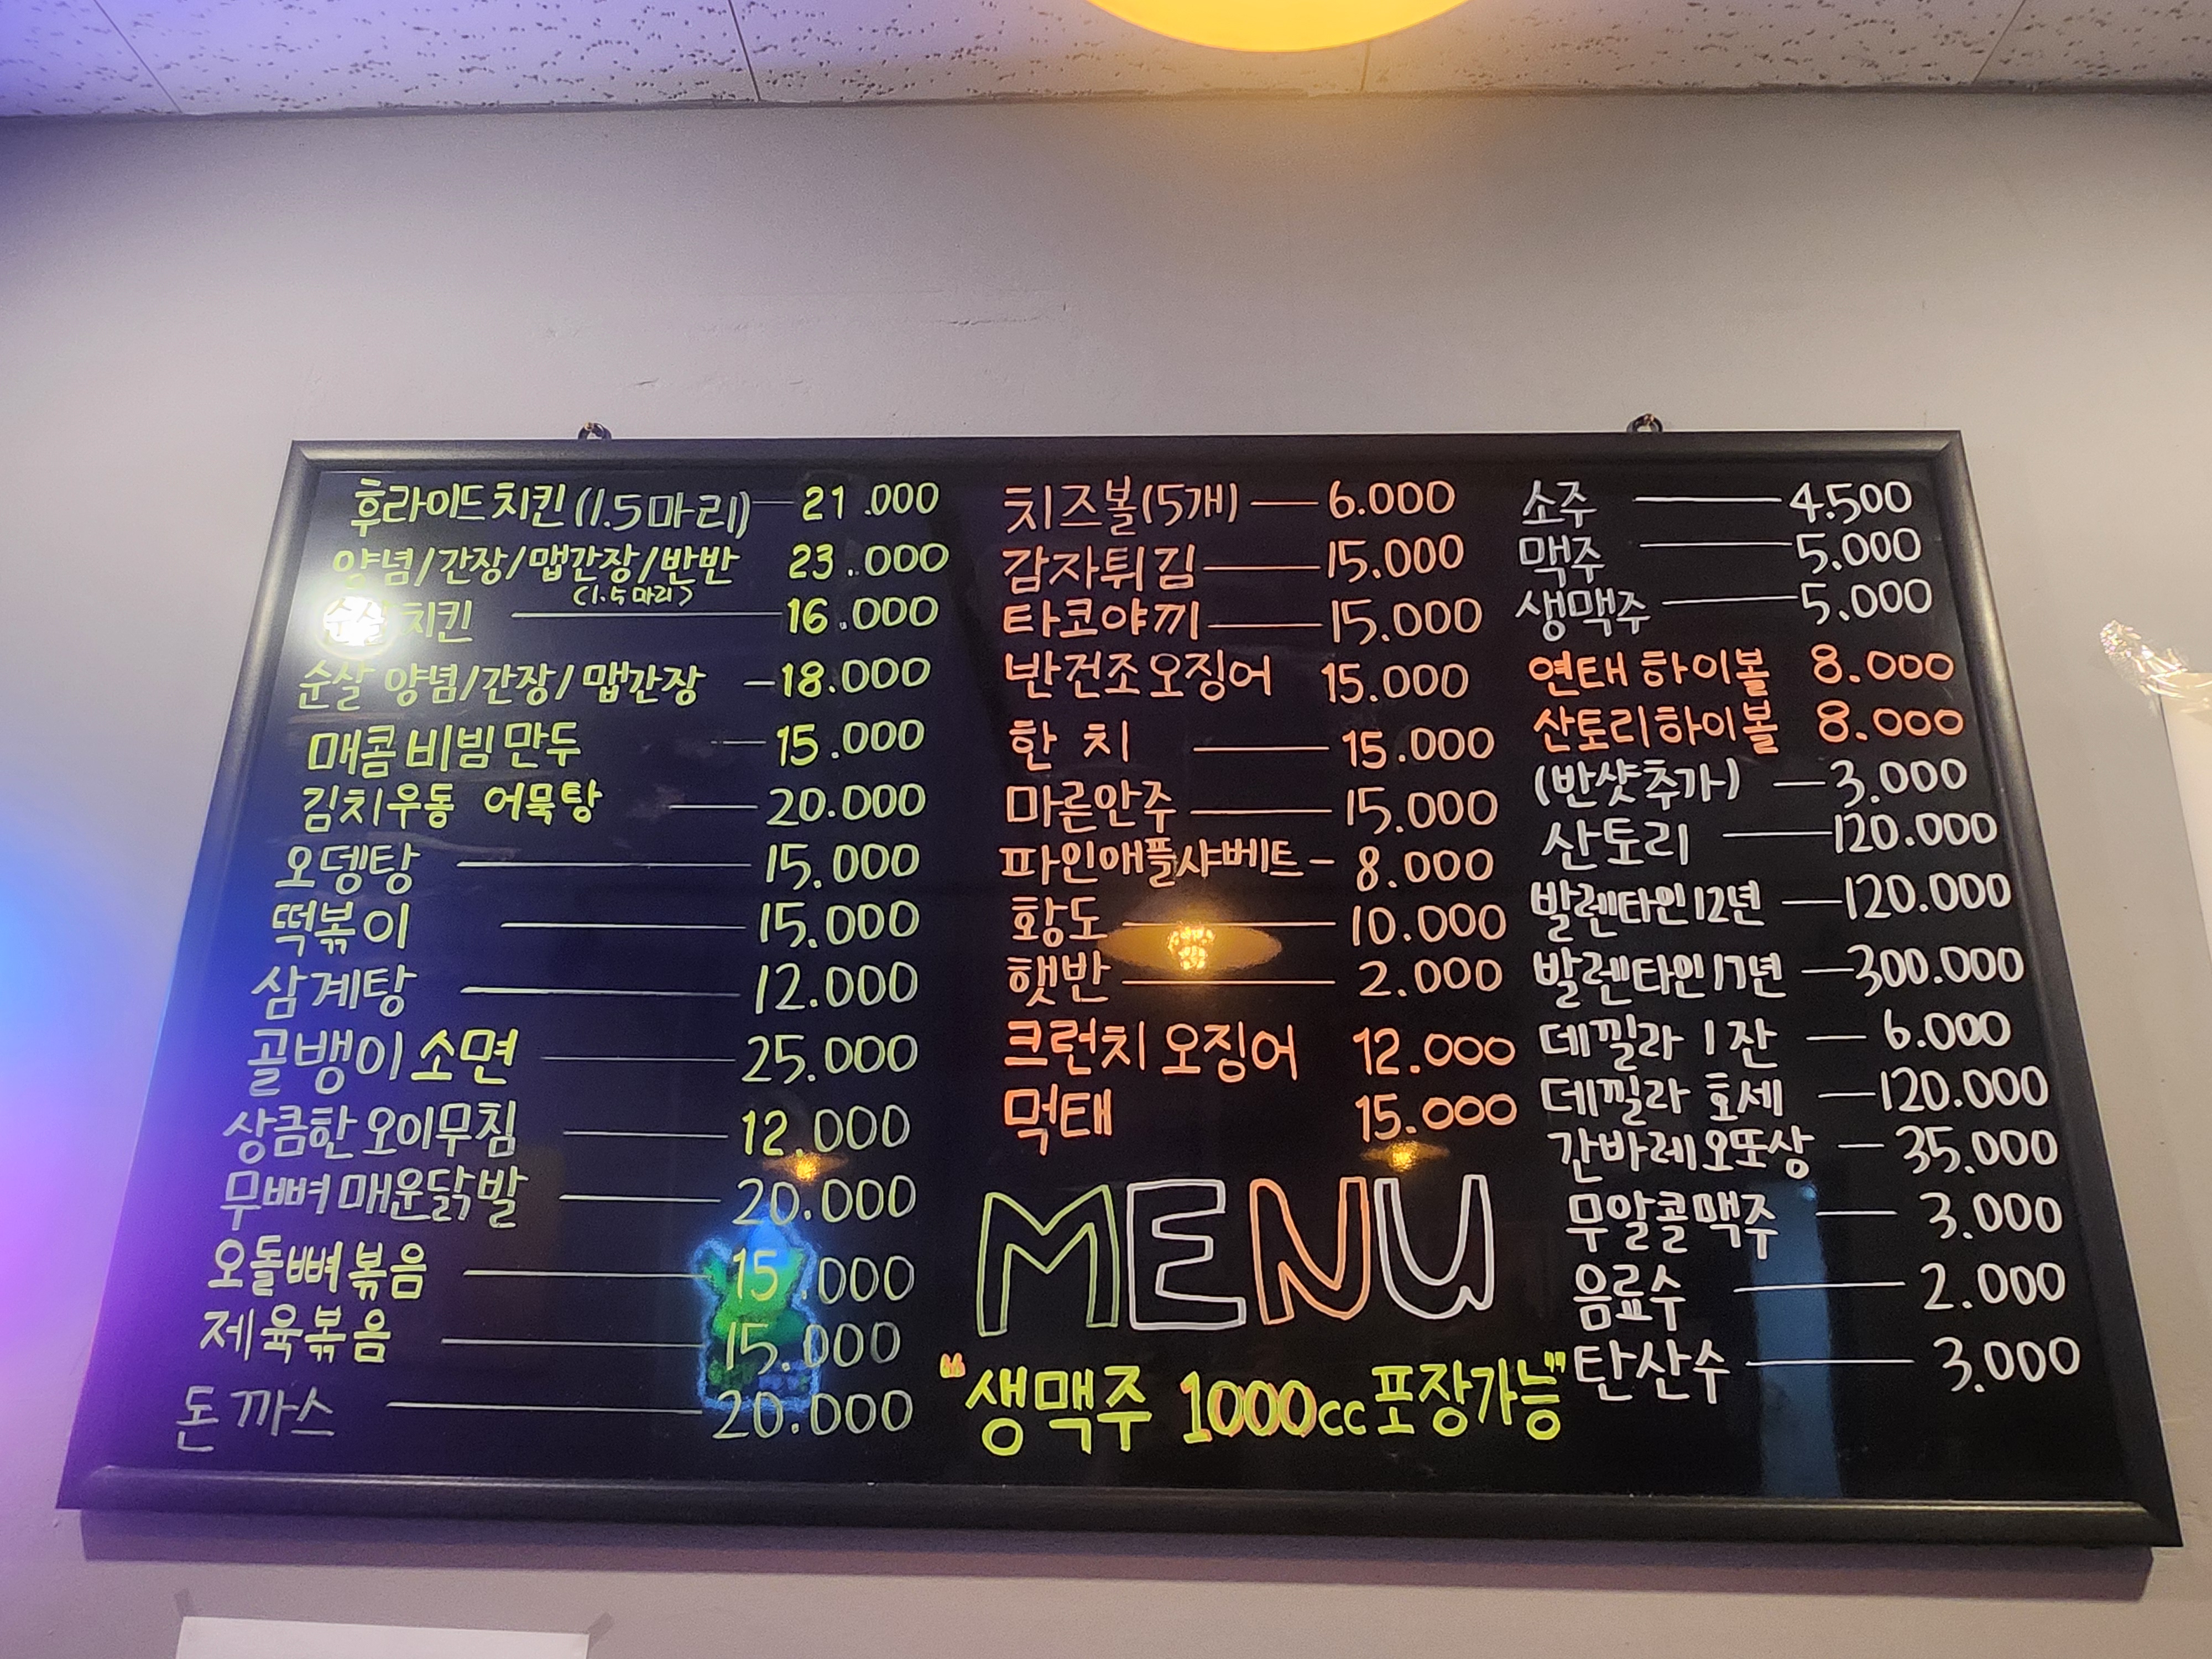 후라이드치킨(1.5마리) 21.000
양념/간장/맵간장/반반 23.000
(1.5마리)
순살치킨 16.000
순살 양념/간장/맵간장 18.000
매콤비빔만두 15.000
김치우동 어묵탕 20.000
오뎅탕 15.000
떡볶이 15.000
삼계탕 12.000
골뱅이소면 25.000
상큼한오이무침 12.000
무뼈매운닭발 20.000
오돌뼈볶음 15.000
제육볶음 15.000
돈까스 20.000
치즈볼(5개) 6.000
감자튀김 15.000
타코야끼 15.000
반건조오징어 15.000
한치 15.000
마른안주 15.000
파인애플샤베트 8.000
황도 10.000
햇반 2.000
크런치오징어 12.000
먹태 15.000
MENU
"생맥주 1000cc포장가능"
소주 4.500
맥주 5.000
생맥주 5.000
연태하이볼 8.000
산토리하이볼 8.000
(반샷추가) 3.000
산토리 120.000
발렌타인12년 120.000
발렌타인17년 300.000
데낄라 1잔 6.000
데낄라 호세 120.000
간바레오또상 35.000
무알콜맥주 3.000
음료수 2.000
탄산수 3.000